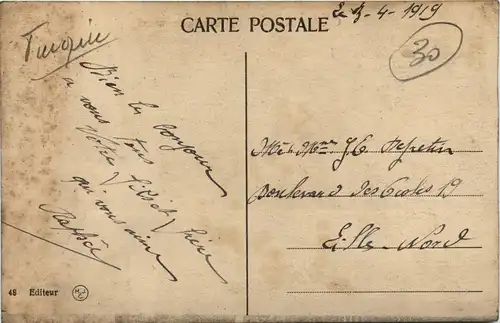 CARTE POSTALE
Le 3-4-1919
Turquie
30
Bien le bonjour
à vous tous
Votre fils et frère
qui vous aime
Mr & Mme J.B.
Boulevard des Ecoles 19
Lille-Nord
48 Editeur